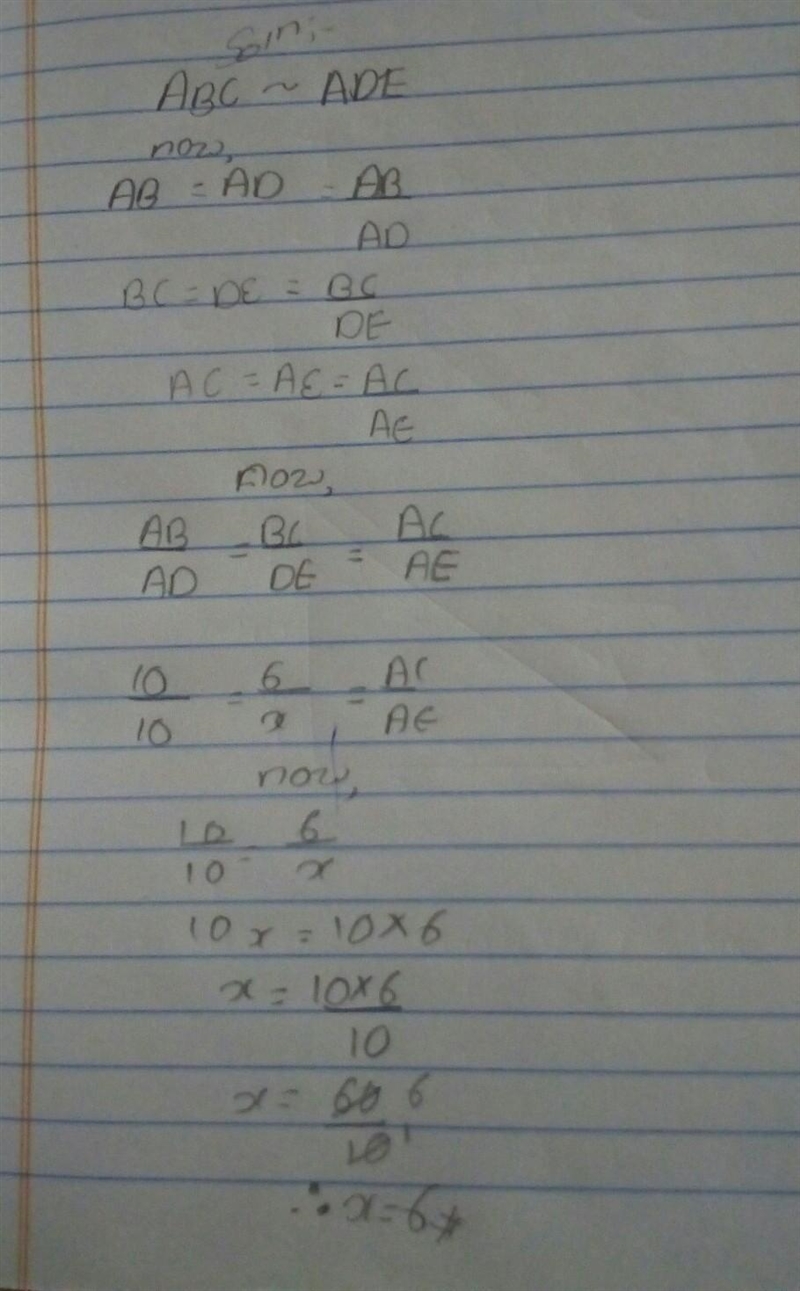 Soln:-
ABC ~ ADE
now,
AB = AD = AB
AD
BC = DE = BC
DE
AC = AE = AC
AE
now,
AB = BC = AC
AD DE AE
10 = 6 = AC
10 x AE
now,
10 = 6
10 x
10x = 10×6
x = 10×6
10
x = 60 6
10 1
∴ x=6